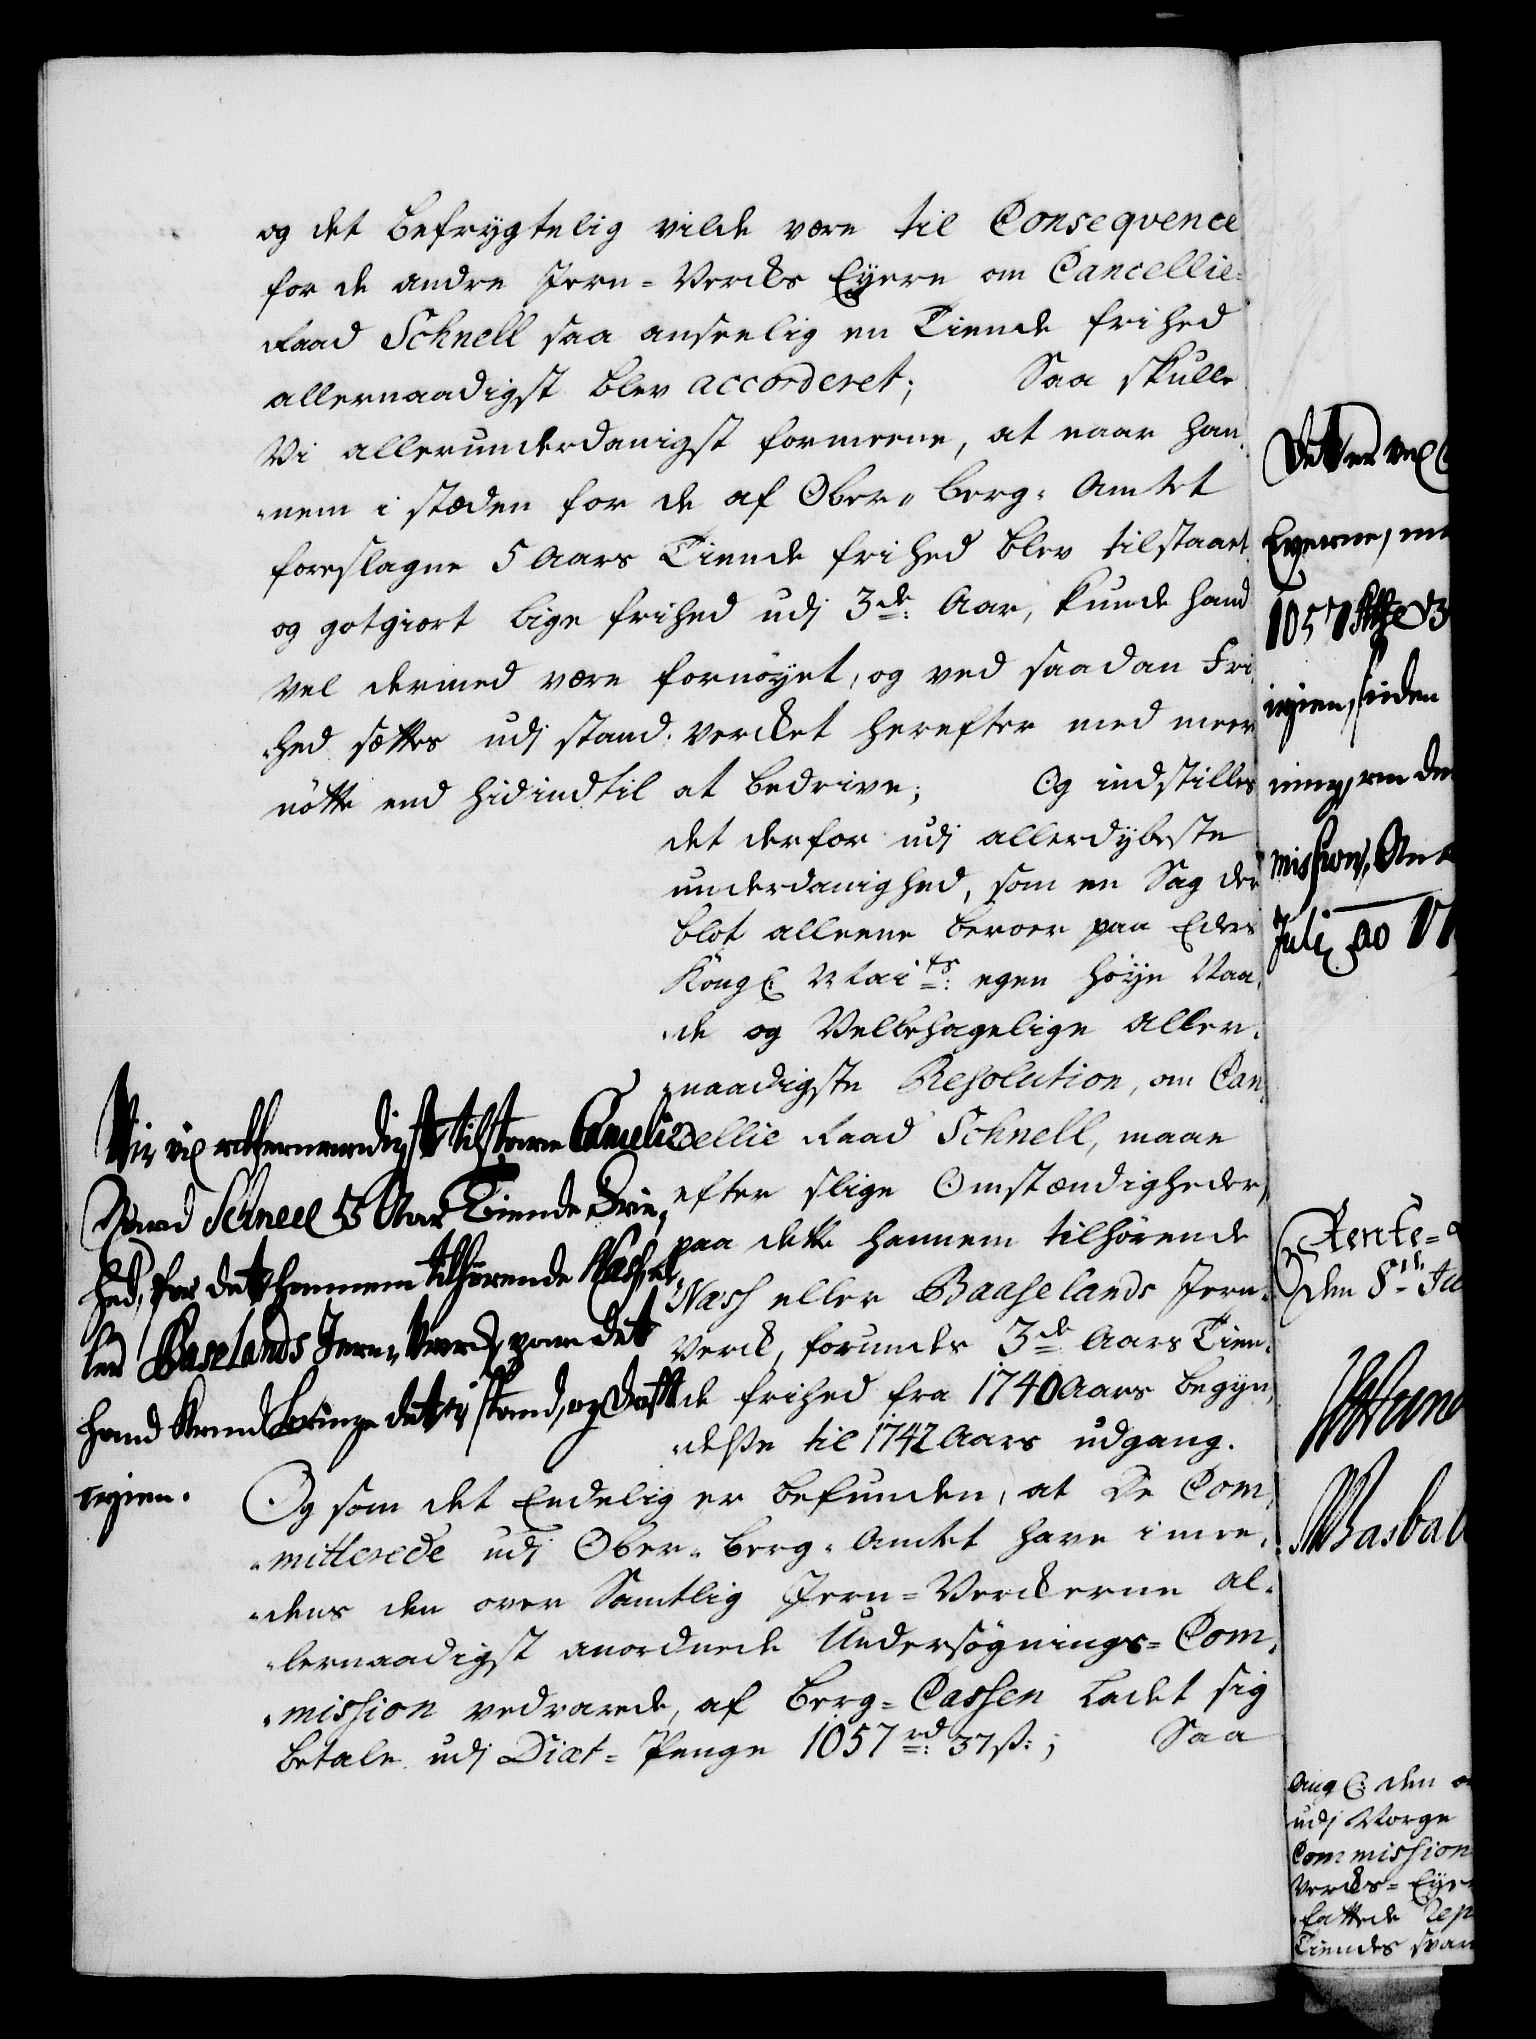 og det befrygtelig vilde være til Conseqvence
for de andre Jern-Vercks Eyere om Cancellie-
Raad Schnell saa anseelig en Tiende frihed
allernaadigst blev accorderet; Saa skulle
Vi allerunderdanigst formeene, at naar han-
nem i stæden for de af Ober-berg-Amtet
foreslagne 5 Aars Tiende frihed blev tilstaaet
og gotgiort lige frihed udj 3de: Aar, kunde hand
vel dermed være fornøyet, og ved saadan Fri-
hed sættes udj stand, Verchet herefter med meer
nötte end hidindtil at bedrive; Og indstilles
det derfor udj allerdybeste
underdanighed, som en Sag der
blot alleene beroer paa Eders
Kongl: Maits: egen høye Naa-
de og Velbehagelige Aller-
naadigste Resolution, om Can-
cellie Raad Schnell, maae
efter slige Omstændigheder,
paa dette hannem tilhørende
Næss eller Baaselands Jern-
Verck, forundes 3de Aars Tien-
de frihed fra 1740 Aars begyn-
delse til 1742 Aars udgang.
Vi vil allernaadigst tilstaae Cancelie
Raad Schnell 5 Aar Tiende Frie-
hed, for det hannem tilhørende Næss, el-
ler Baselands Jern-Verck, paa det
hand kand bringe det i stand, og drift
igien.
Og som det Endelig er befunden, at De Com-
mitterede udj Ober-berg-Amtet have imee-
dens den over Samtlig Jern-Verckerne al-
lernaadigst anordnede Undersøgnings-Com-
mission vedvarede, af Berg-Cassen ladet sig
betale udj Diæt-Penge 1057 rd: 37 ß:; Saa
Det er vel
Eyerne,
1057
igien, siden
ning, om de
missions,
Julij ao 17
Rente-
den 8de Ju
Ang: den
udj Norge
Commission
Vercks-Eye
fattede Rep
Tiendes svar